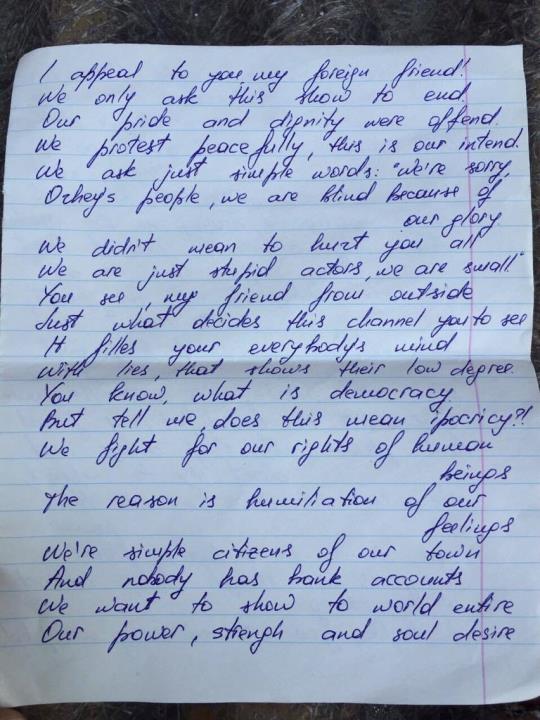 I appeal to you, my foreign friend!
We only ask this show to end.
Our pride and dignity were offend.
We protest peacefully, this is our intend.
We ask just simple words: "We're sorry,
Orhey's people, we are blind because of
our glory
We didn't mean to hurt you all
We are just stupid actors, we are small."
You see, my friend from outside
Just what decides this channel you to see
It filles your everybody's mind
With lies, that shows their low degree.
You know, what is democracy.
But tell me, does this mean ipocricy?!
We fight for our rights of human
beings
The reason is humiliation of our
feelings
We're simple citizens of our town
And nobody has bank accounts
We want to show to world entire
Our power, strengh and soul desire